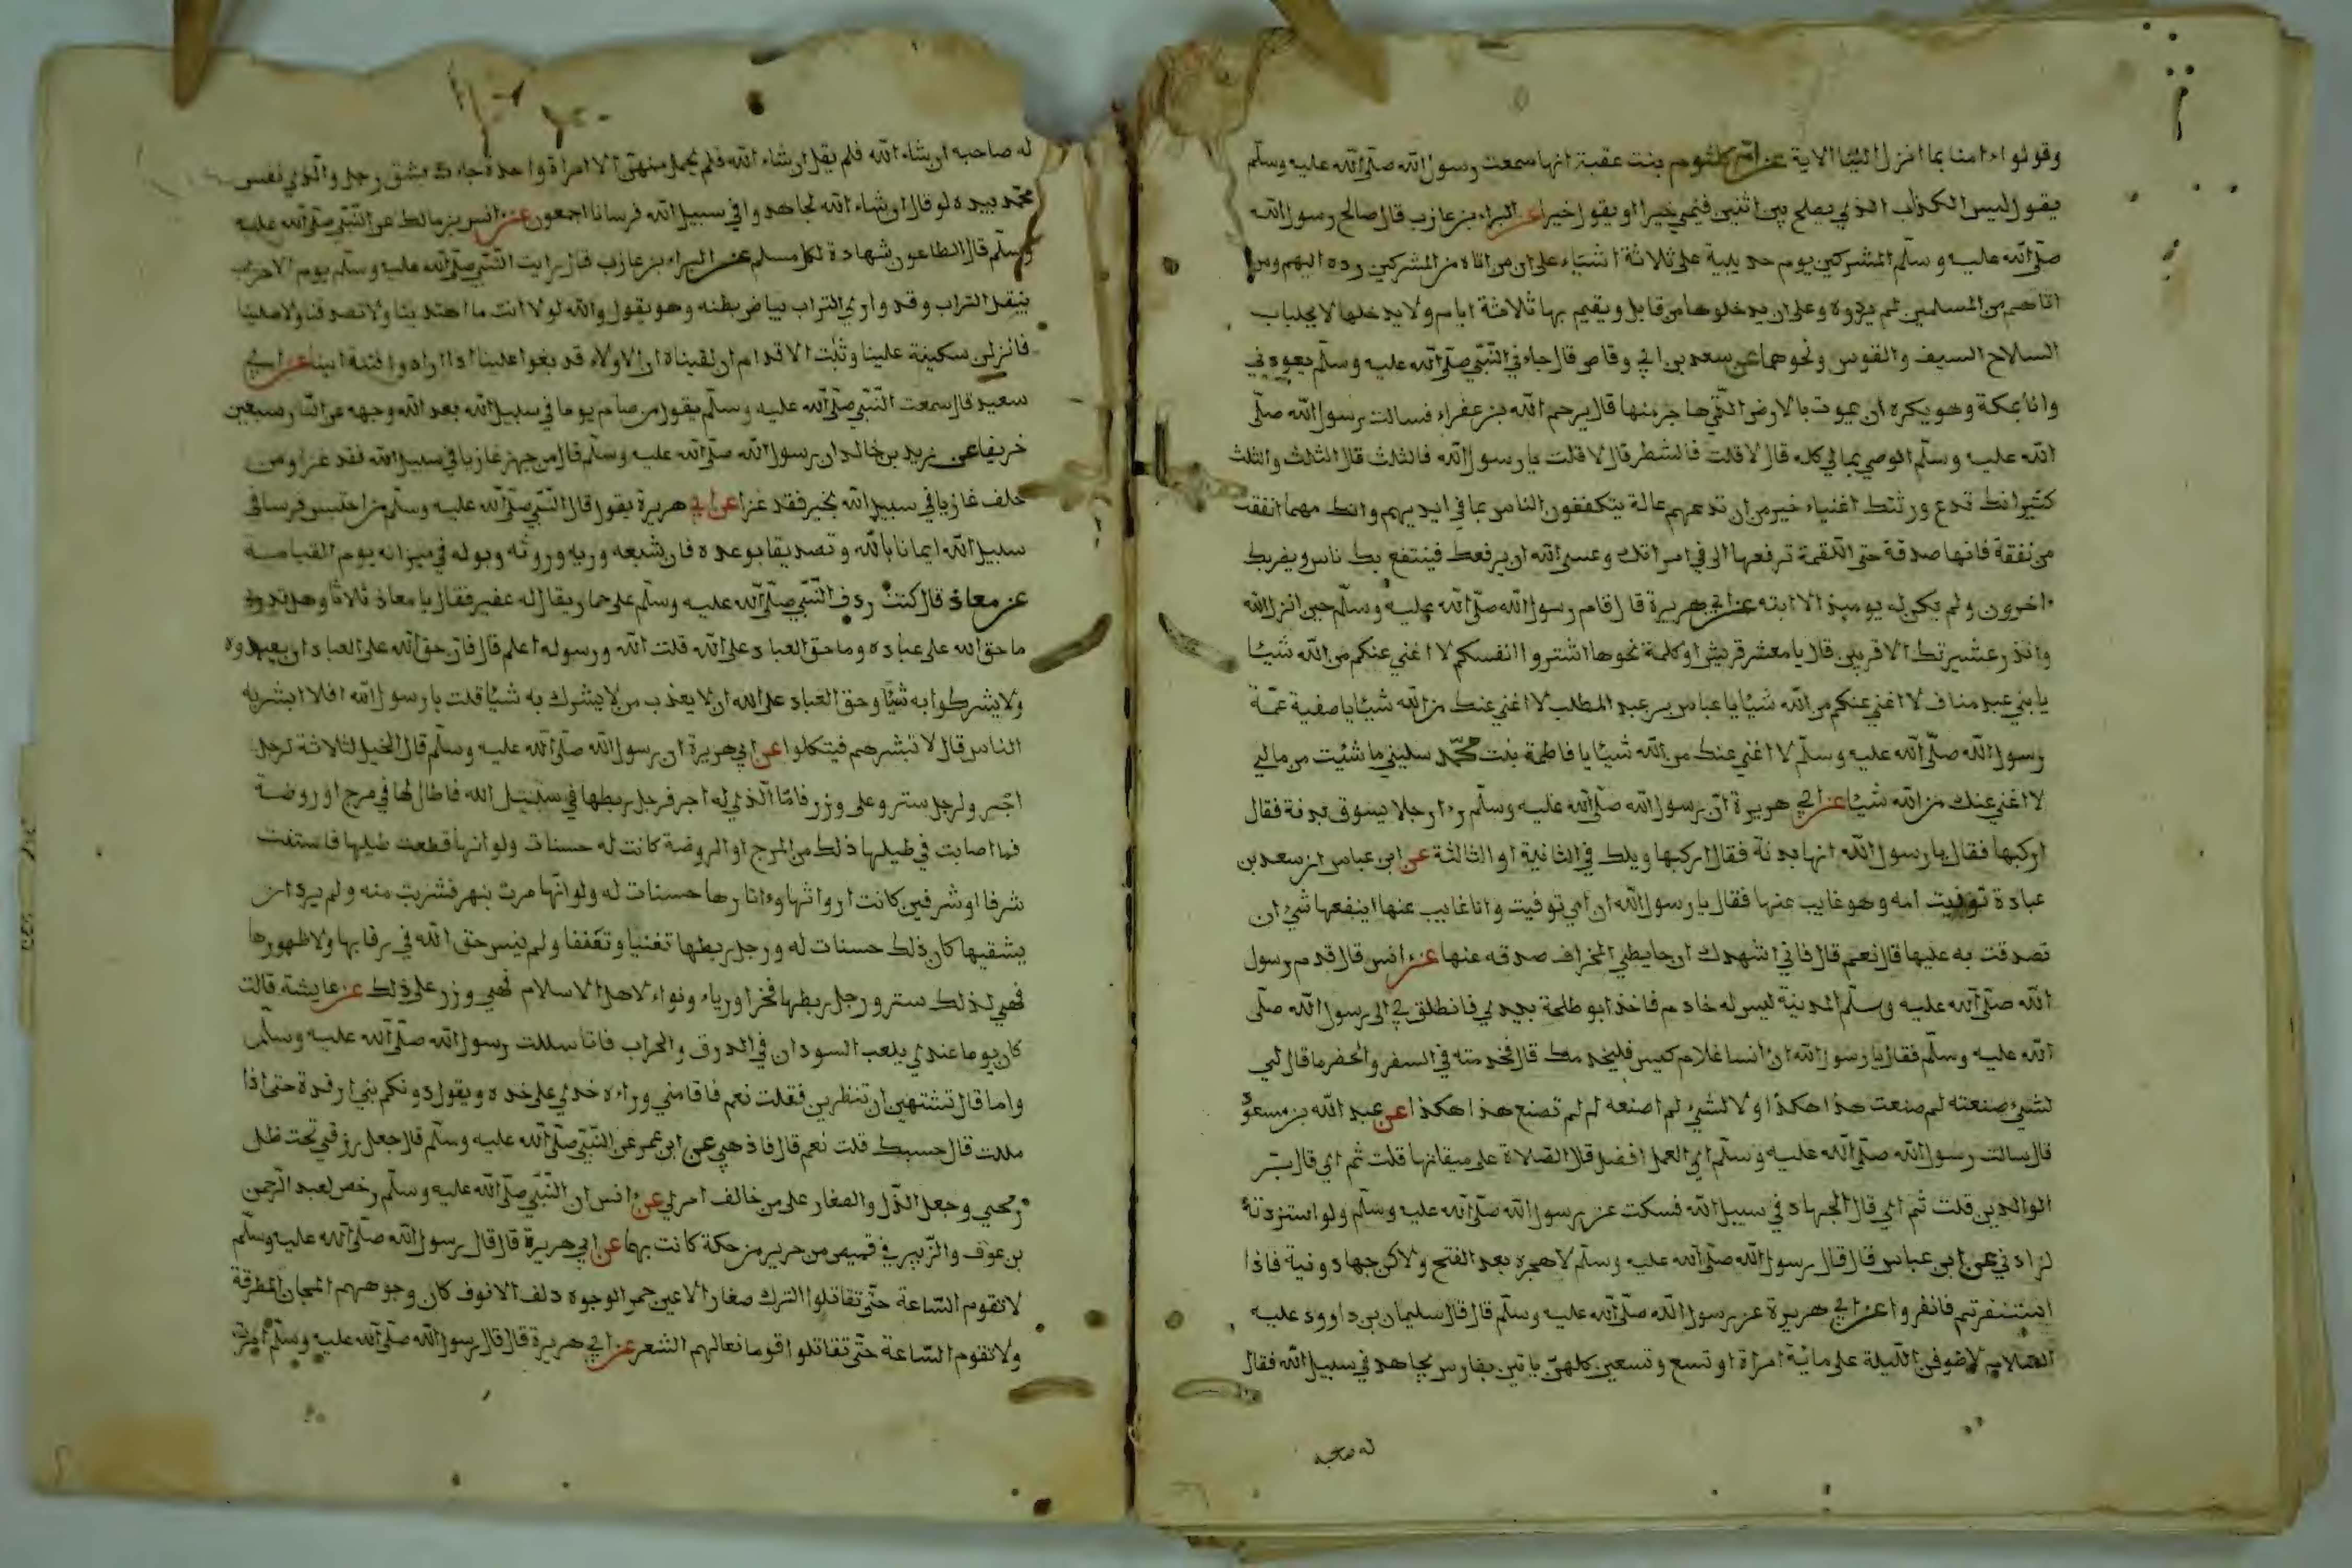 وقولوا ءامنا بما انزل الينا الاية عن ام كلثوم بنت عقبة انها سمعت رسول الله صلى الله عليه وسلم
يقول ليس الكذاب الذي يصلح بين اثنين فينمي خيرا او يقول خيرا عن البراء بن عازب قال صالح رسول الله
صلى الله عليه وسلم المشركين يوم حديبية على ثلاثة اشياء على ان من اتاه من المشركين رده اليهم ومن
اتاهم من المسلمين لم يردوه وعلى ان يدخلوها من قابل ويقيم بها ثلاثة ايام ولا يدخلها الا بجلباب
السلاح السيف والقوس ونحوهما عن سعد بن ابي وقاص قال جاءني النبي صلى الله عليه وسلم يعودني
وانا بمكة وهو يكره ان يموت بالارض التي هاجر منها قال يرحم الله بن عفراء فسالت رسول الله صلى
الله عليه وسلم اوصي بمالي كله قال لا قلت فالشطر قال لا قلت يا رسول الله فالثلث قال الثلث والثلث
كثير انك تدع ورثتك اغنياء خير من ان تدعهم عالة يتكففون الناس بما في ايديهم وانك مهما انفقت
من نفقة فانها صدقة حتى اللقمة ترفعها الى في امراتك وعسى الله ان يرفعك فينتفع بك ناس ويضربك
اخرون ولم يكن له يوميذ الا ابنته عن ابي هريرة قال قام رسول الله صلى الله عليه وسلم حين انزل الله
وانذر عشيرتك الاقربين قال يا معشر قريش او كلمة نحوها اشتروا انفسكم لا اغني عنكم من الله شيئا
يا بني عبد مناف لا اغني عنكم من الله شيئا يا عباس بن عبد المطلب لا اغني عنك من الله شيئا يا صفية عمة
رسول الله صلى الله عليه وسلم لا اغني عنك من الله شيئا يا فاطمة بنت محمد سليني ما شئت من مالي
لا اغني عنك من الله شيئا عن ابي هريرة ان رسول الله صلى الله عليه وسلم رءا رجلا يسوق بدنة فقال
اركبها فقال يا رسول الله انها بدنة فقال اركبها ويلك في الثانية او الثالثة عن ابن عباس ان سعد بن
عبادة توفيت امه وهو غايب عنها فقال يا رسول الله ان امي توفيت وانا غايب عنها اينفعها شيء ان
تصدقت به عليها قال نعم قال فاني اشهدك ان حايطي المخراف صدقه عنها عن انس قال قدم رسول
الله صلى الله عليه وسلم المدينة ليس له خادم فاخذ ابو طلحة بيدي فانطلق بي الى رسول الله صلى
الله عليه وسلم فقال يا رسول الله ان انسا غلام كيس فليخدمك قال فخدمته في السفر والحضر ما قال لي
لشيء صنعته لم صنعت هذا هكذا ولا لشيء لم اصنعه لم لم تصنع هذا هكذا عن عبد الله بن مسعود
قال سالت رسول الله صلى الله عليه وسلم اي العمل افضل قال الصلاة على ميقاتها قلت ثم اي قال بر
الوالدين قلت ثم اي قال الجهاد في سبيل الله فسكت عن رسول الله صلى الله عليه وسلم ولو استزدته
لزادني عن ابن عباس قال قال رسول الله صلى الله عليه وسلم لا هجره بعد الفتح ولاكن جهاد ونية فاذا
استنفرتم فانفروا عن ابي هريرة عن رسول الله صلى الله عليه وسلم قال قال سليمان بن داوود عليه
السلام لاطوفن الليلة على مائية امراة او تسع وتسعين كلهن ياتين بفارس يجاهد في سبيل الله فقال
له صاحبه
له صاحبه ان شاء الله فلم يقل ان شاء الله فلم يحمل منهن الا امراة واحدة جاءت بشق رجل والذي نفس
محمد بيده لو قال ان شاء الله لجاهدوا في سبيل الله فرسانا اجمعون عن انس بن مالك عن النبي صلى الله عليه
وسلم قال الطاعون شهادة لكل مسلم عن البراء بن عازب قال رايت النبي صلى الله عليه وسلم يوم الاحزاب
ينقل التراب وقد وارى التراب بياض بطنه وهو يقول والله لولا انت ما اهتدينا ولا تصدقنا ولا صلينا
فانزلن سكينة علينا وثبت الاقدام ان لقيناه ان الاولاء قد بغوا علينا اذا ارادوا فتنة ابينا عن ابي
سعيد قال سمعت النبي صلى الله عليه وسلم يقول من صام يوما في سبيل الله بعد الله وجهه عن النار سبعين
خريفا عن زيد بن خالد ان رسول الله صلى الله عليه وسلم قال من جهز غازيا في سبيل الله فقد غزا ومن
خلف غازيا في سبيل الله بخير فقد غزا عن ابي هريرة يقول قال النبي صلى الله عليه وسلم من احتبس فرسا في
سبيل الله ايمانا بالله وتصديقا بوعده فان شبعه وريه وروثه وبوله في ميزانه يوم القيامة
عن معاذ قال كنت ردف النبي صلى الله عليه وسلم على حمار يقال له عفير فقال يا معاذ ثلاثا وهل تدري
ما حق الله على عباده وما حق العباد على الله قلت الله ورسوله اعلم قال فان حق الله على العباد ان يعبدوه
ولا يشركوا به شيئا وحق العباد على الله ان لا يعذب من لا يشرك به شيئا قلت يا رسول الله افلا ابشر به
الناس قال لا تبشرهم فيتكلوا عن ابي هريرة ان رسول الله صلى الله عليه وسلم قال الخيل لثلاثة لرجل
اجر ولرجل ستر وعلى وزر فاما الذي له اجر فرجل ربطها في سبيل الله فاطال لها في مرج او روضة
فما اصابت في طيلها ذلك من المرج او الروضة كانت له حسنات ولو انها قطعت طيلها فاستنت
شرفا او شرفين كانت ارواثها وءاثارها حسنات له ولو انها مرت بنهر فشربت منه ولم يرد ان
يسقيها كان ذلك حسنات له ورجل ربطها تغنيا وتعففا ولم ينس حق الله في رقابها ولا ظهورها
فهي لذلك ستر ورجل ربطها فخرا ورياء ونواء لاهل الاسلام فهي وزر على ذلك عن عايشة قالت
كان يوما عندي يلعب السودان في الدرق والحراب فاما سالت رسول الله صلى الله عليه وسلم
واما قال تشتهين ان تنظرين فقلت نعم فاقامني وراءه خدي على خده ويقول دونكم بني ارفدة حتى اذا
مللت قال حسبك قلت نعم قال فاذهبي عن ابن عمر عن النبي صلى الله عليه وسلم قال جعل رزقي تحت ظل
رمحي وجعل الذل والصغار على من خالف امري عن انس ان النبي صلى الله عليه وسلم رخص لعبد الرحمن
بن عوف والزبير في قميص من حرير من حكة كانت بهما عن ابي هريرة قال قال رسول الله صلى الله عليه وسلم
لا تقوم الساعة حتى تقاتلوا الترك صغار الاعين حمر الوجوه دلف الانوف كان وجوههم المجان المطرقة
ولا تقوم الساعة حتى تقاتلوا قوما نعالهم الشعر عن ابي هريرة قال قال رسول الله صلى الله عليه وسلم امرت